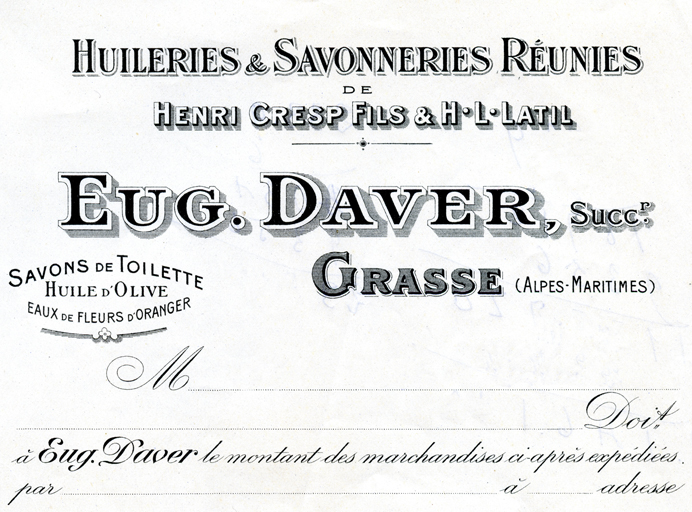 HUILERIES & SAVONNERIES RÉUNIES
DE
HENRI CRESP FILS & H·L·LATIL
EUG. DAVER, SUCCR.
GRASSE (ALPES-MARITIMES)
SAVONS DE TOILETTE
HUILE D'OLIVE
EAUX DE FLEURS D'ORANGER
M
Doit
à Eug. Daver le montant des marchandises ci-après expédiées.
par à adresse